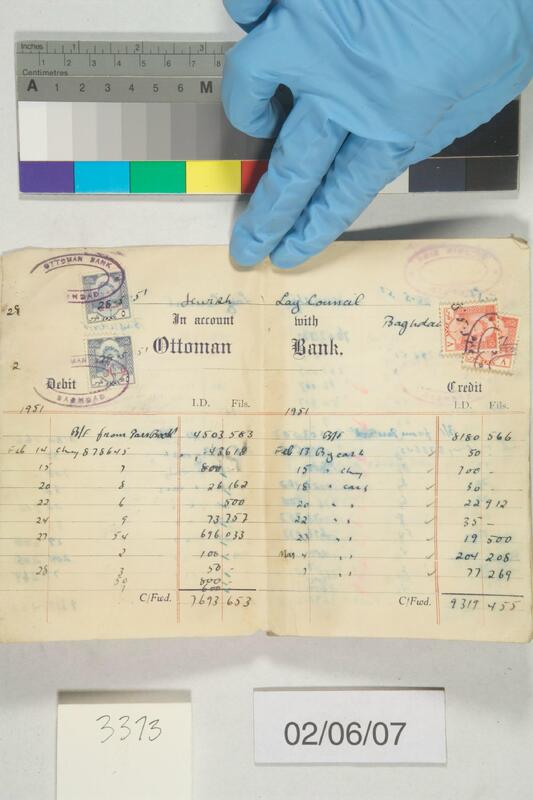 Inches 1 2 3
Centimetres
A 1 2 3 4 5 6 M
OTTOMAN BANK
28
2
Jewish Lay Council
In account with Baghdad
Ottoman Bank.
Debit Credit
I.D. Fils. I.D. Fils.
1951 1951
B/F from Pass Book 4503 583 B/F 8180 566
Feb 14 Chq 878645 Feb 13 By cash 50
15 7 800 15 " chq 700 -
20 8 26 162 18 " cash 50 -
22 6 500 20 " " 22 912
24 9 73 757 22 " " 35 -
27 54 696 033 19 500
2 100 Mar 4 204 208
28 3 50 7 " " 77 269
50 800
C/Fwd. 7693 653 C/Fwd. 9319 455
3373
02/06/07